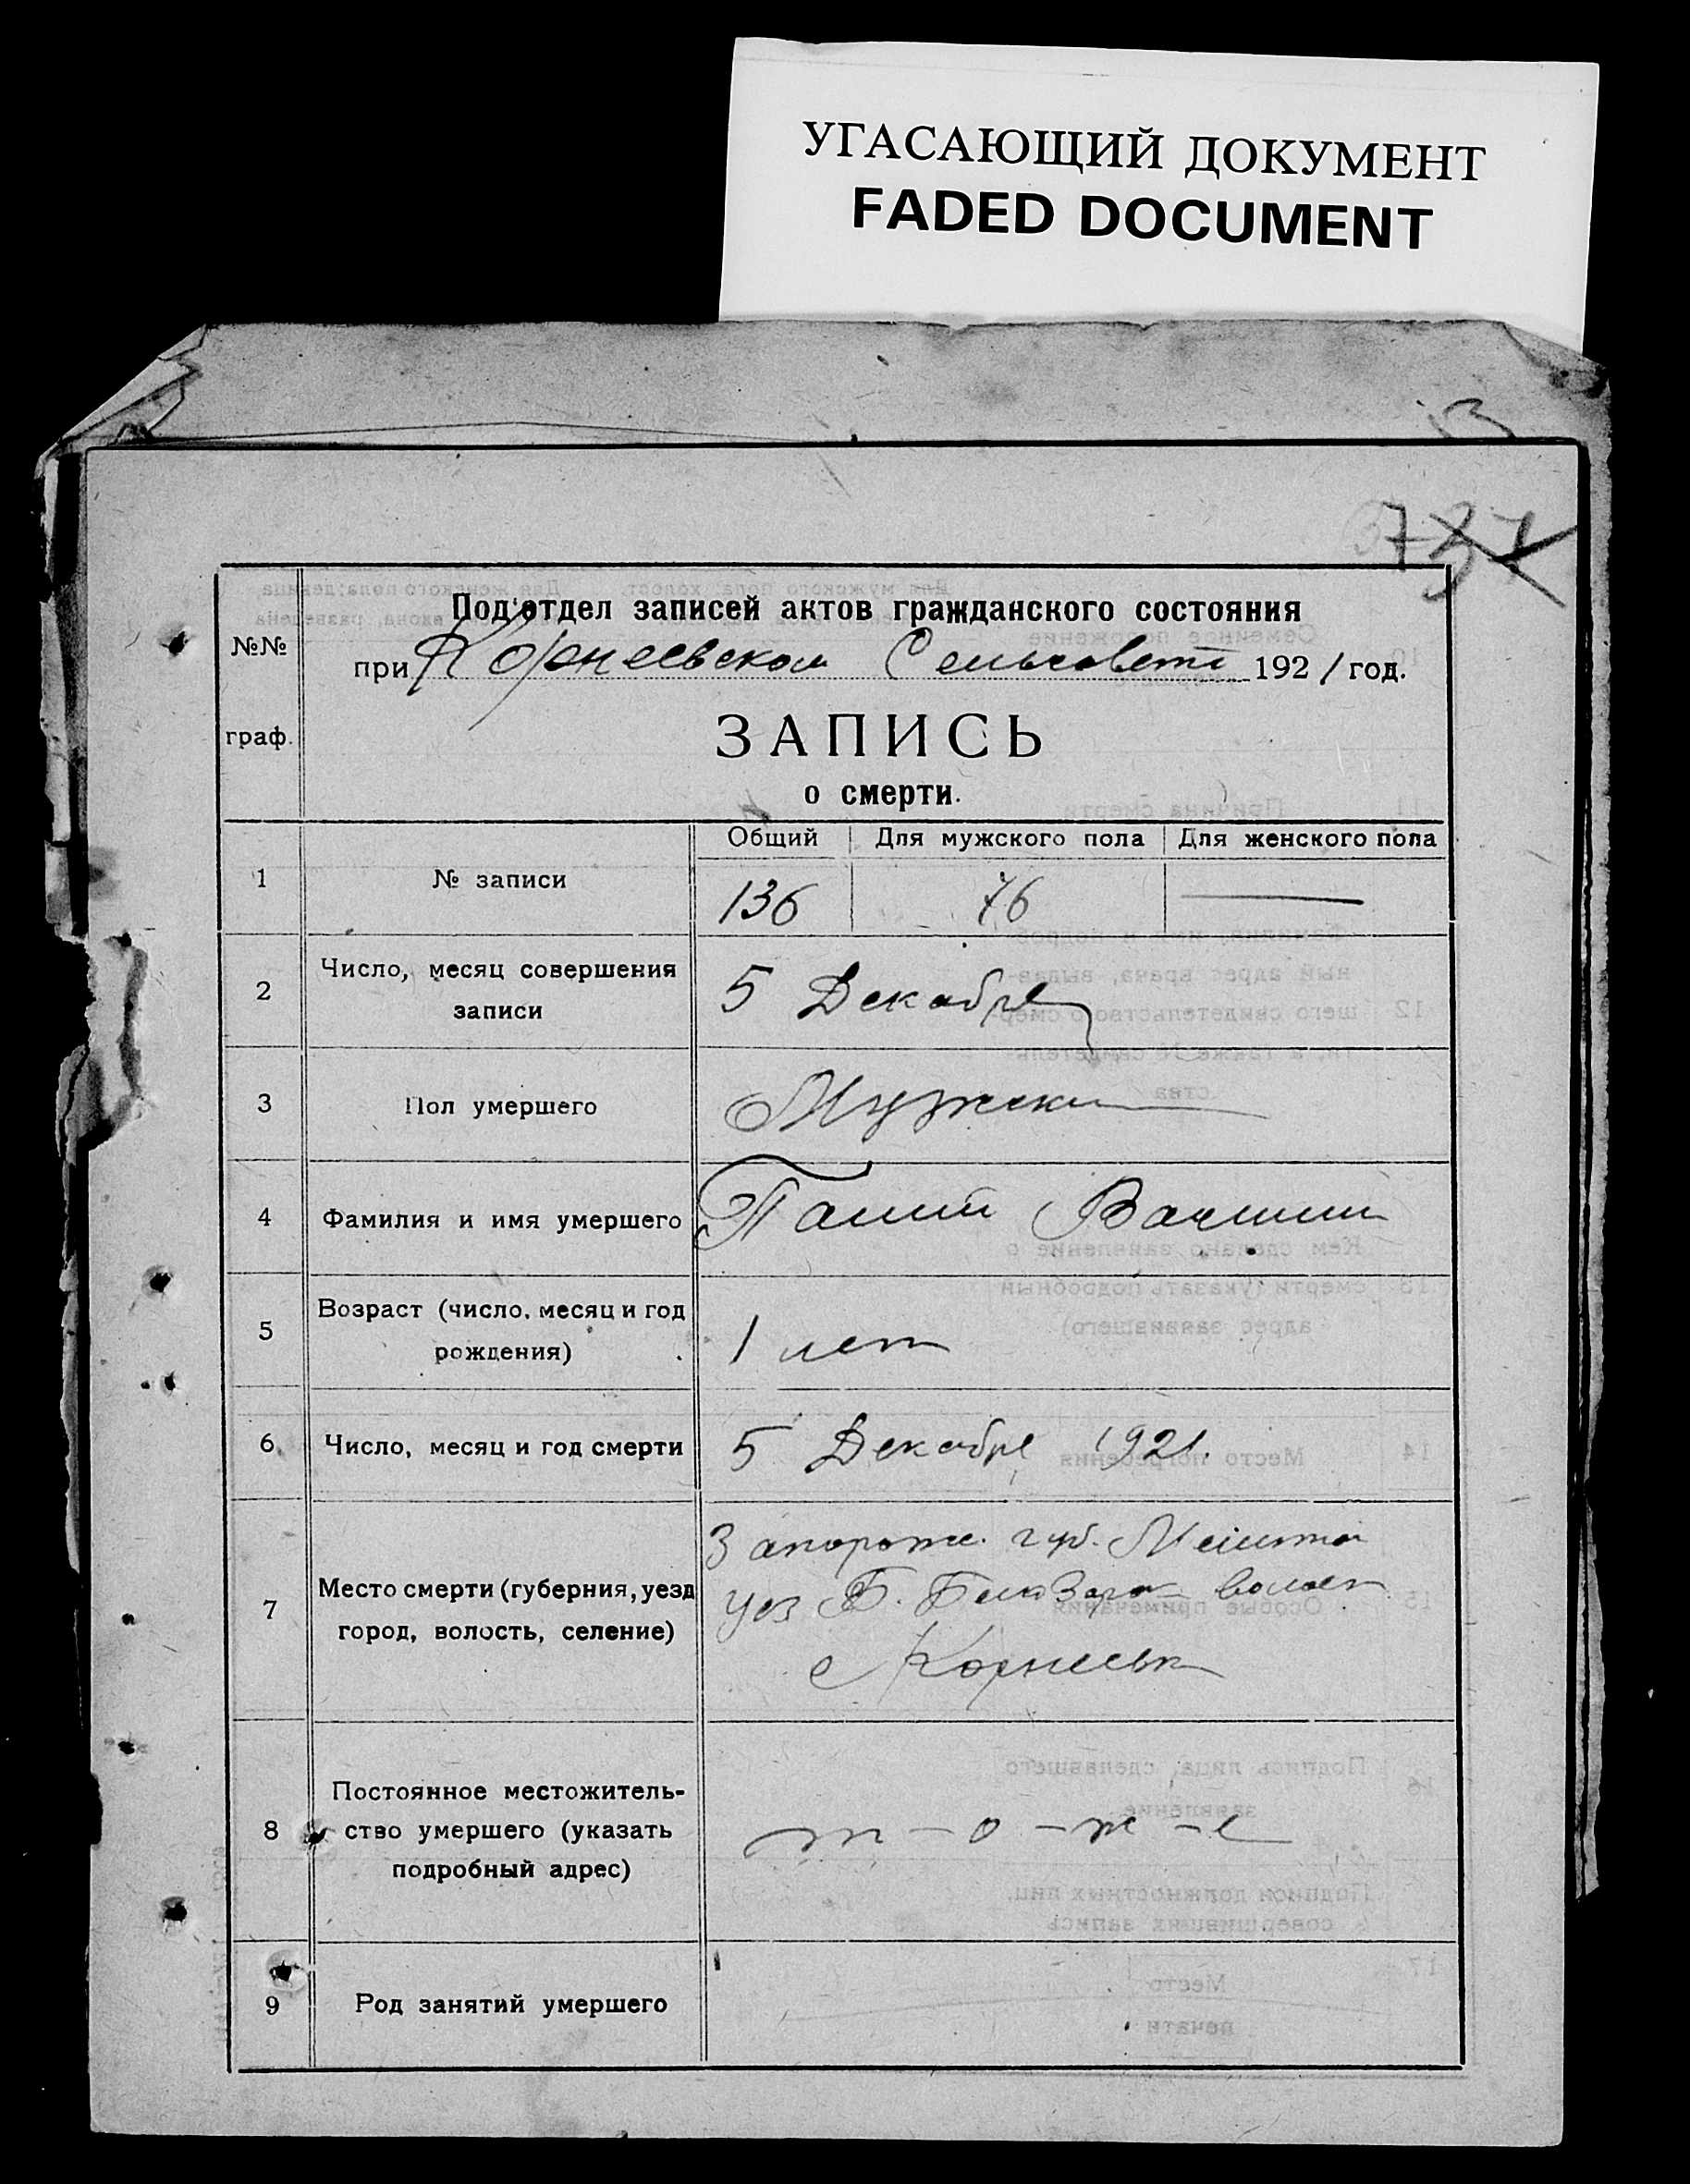 УГАСАЮЩИЙ ДОКУМЕНТ
FADED DOCUMENT
Под'отдел записей актов гражданского состояния
№№
при Корнеевском Сельсовете 1921 год.
граф.
ЗАПИСЬ
о смерти.
Общий Для мужского пола Для женского пола
1 № записи 136 76 —
2 Число, месяц совершения
записи
5 Декабря
3 Пол умершего Мужски
4 Фамилия и имя умершего
5 Возраст (число, месяц и год
рождения)
1 лет
6 Число, месяц и год смерти 5 Декабре 1921.
Запорож. губ.
7 Место смерти (губерния, уезд
город, волость, селение)
уез Б. Белозерск волост
с Корнеевк
8 Постоянное местожитель-
ство умершего (указать
подробный адрес)
т-о-ж-е
9 Род занятий умершего